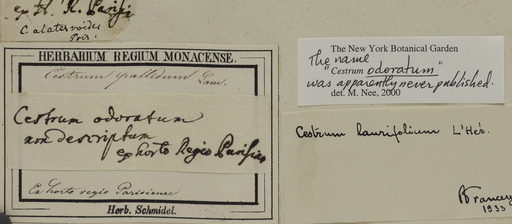 ex H. R. Parisin
C. alaternoides
Poir.
HERBARIUM REGIUM MONACENSE.
Cestrum pallidum Lam.
Cestrum odoratum
non descriptum
ex horto Regio Parisino
Ex horto regio Parisiensi
Herb. Schmidel.
The New York Botanical Garden
The name
"Cestrum odoratum"
was apparently never published.
det. M. Nee, 2000
Cestrum laurifolium L'Hér.
Francey
1933